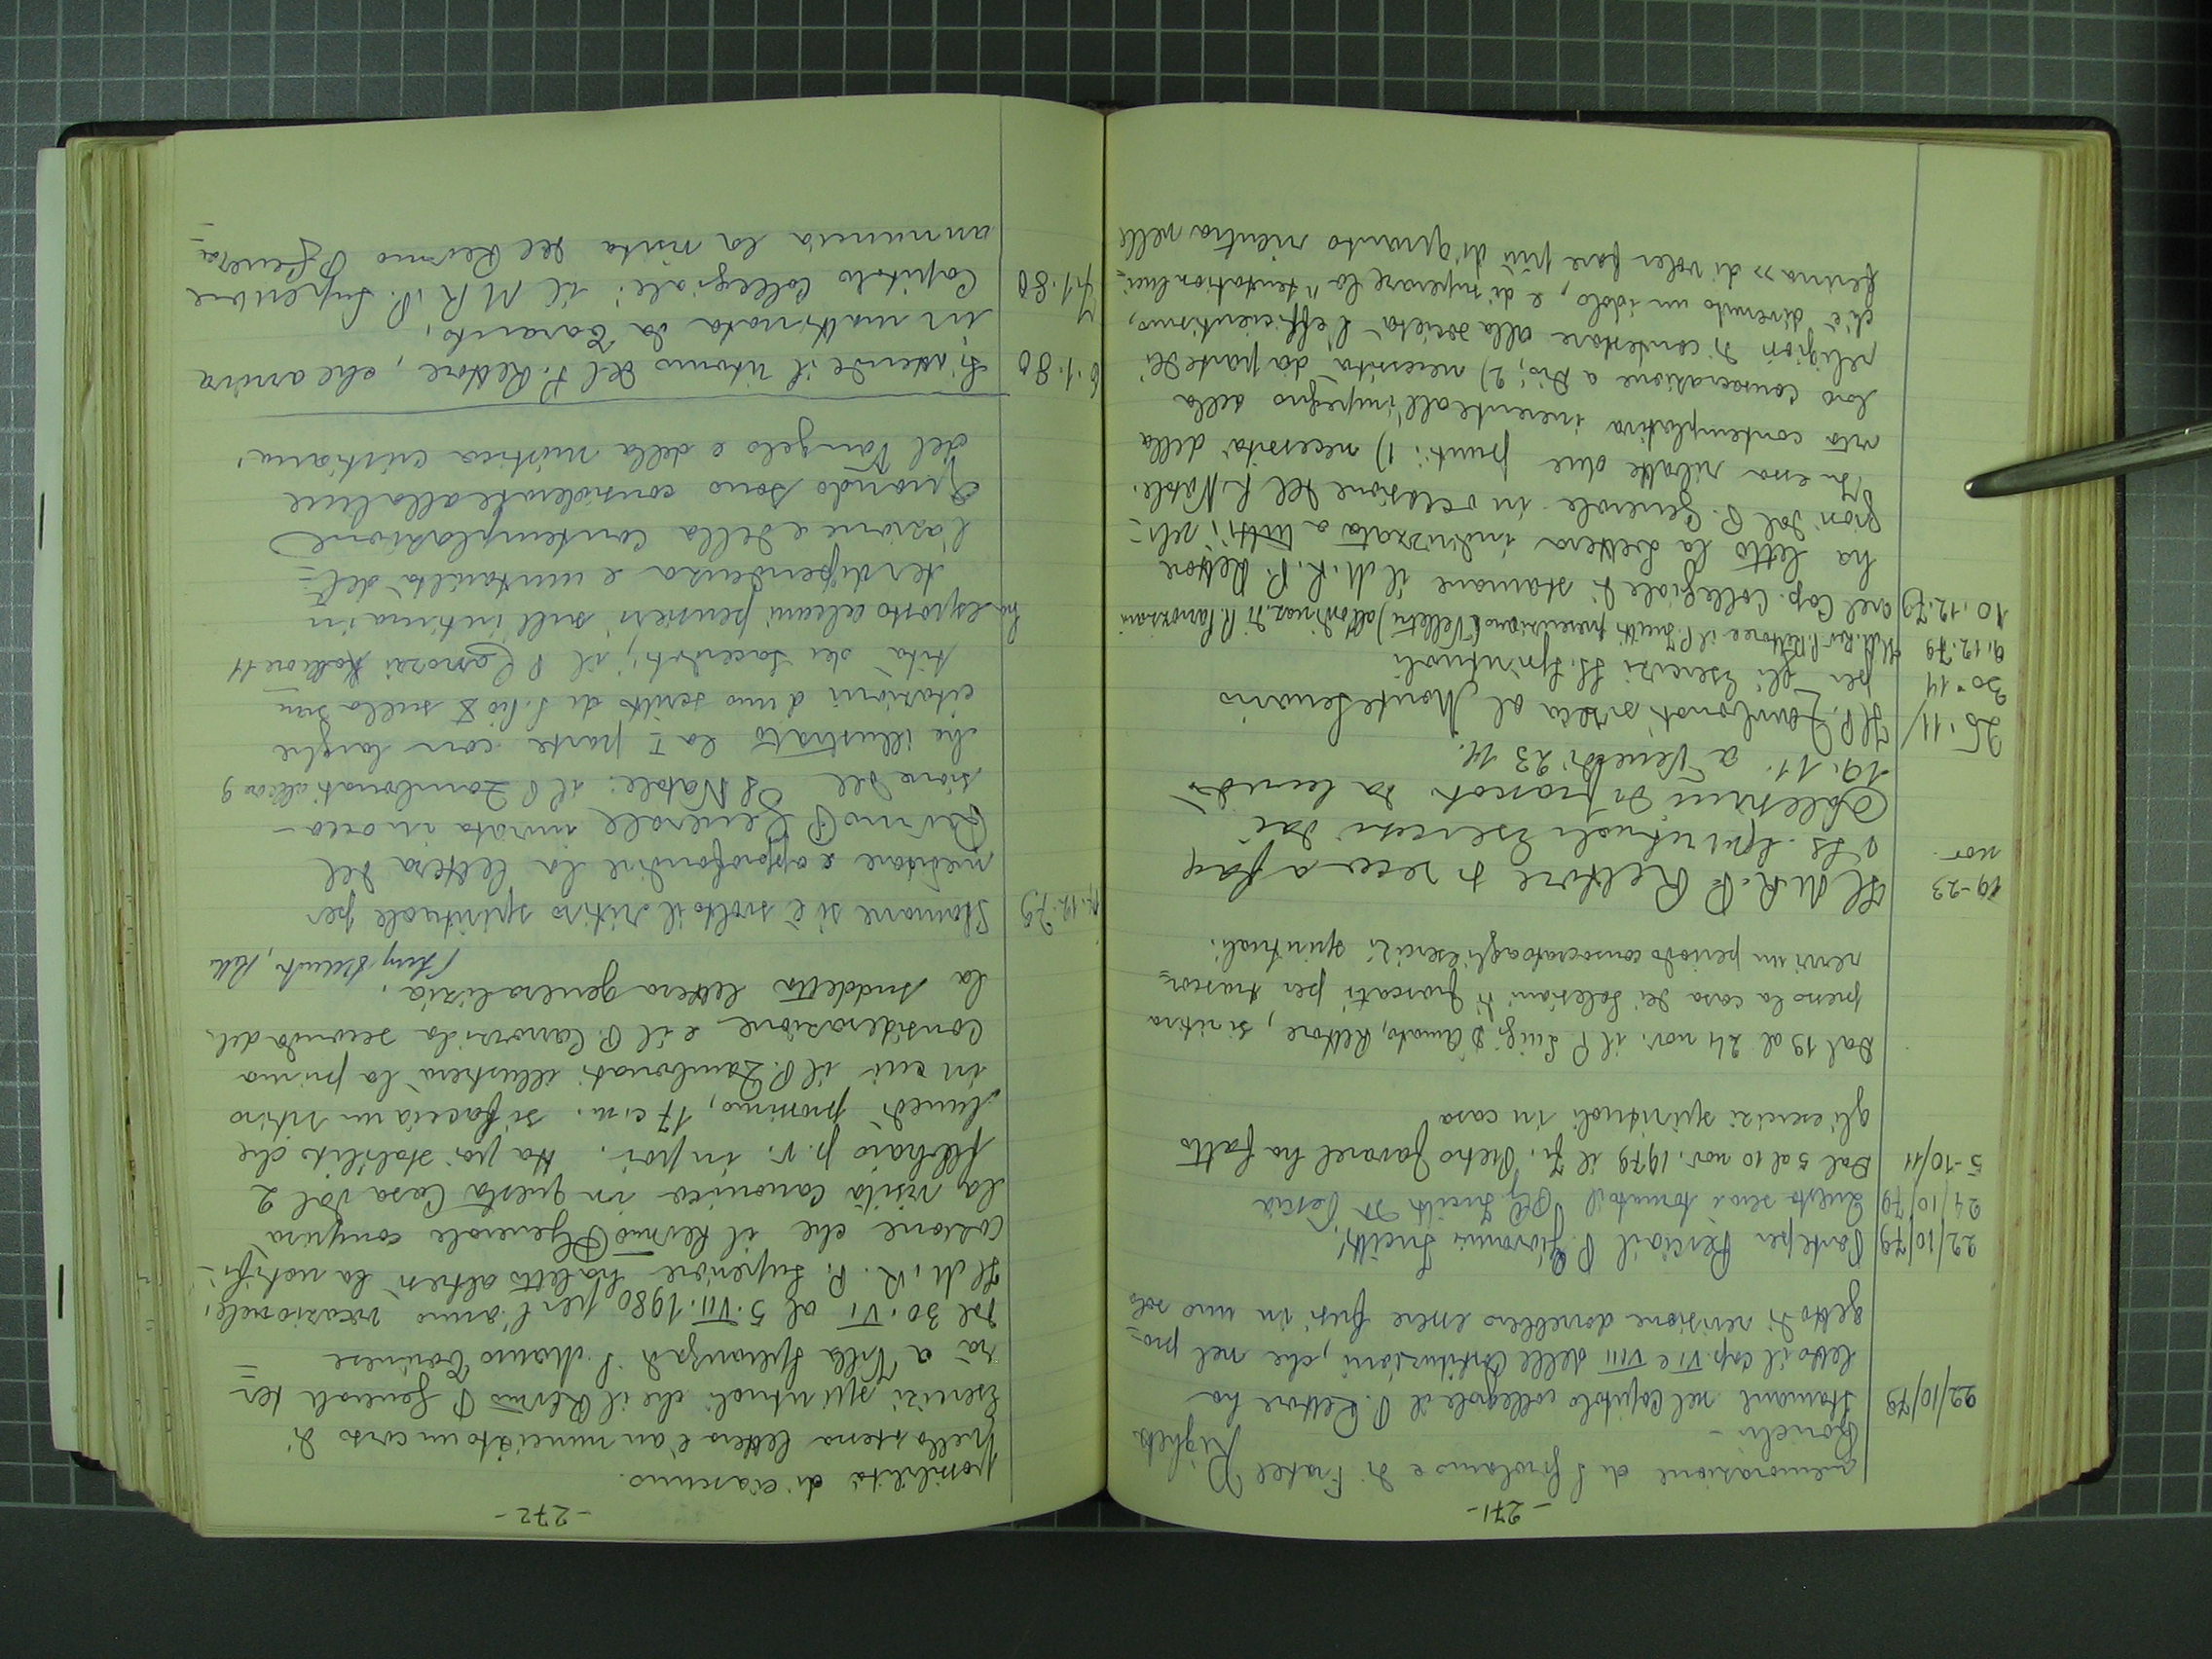 -271-
memorazione di S. Girolamo e di Fratel Righetto
Cionchi -
22/10/79 Stamane nel Capitolo collegiale il P. Rettore ha
letto il cap. VI e VIII delle Costituzioni, che nel pro=
getto di revisione dovrebbero essere fusi in uno solo
22/10/79 Parte per Pescia il P. Giovanni
24/10/79 Questa sera è tornato il P. da Pescia
5-10/11 Dal 5 al 10 nov. 1979 il fr. Pietro Favarel ha fatto
gli esercizi spirituali in casa
Dal 19 al 24 nov. il P. Luigi D'Amato, Rettore, si ritira
presso la casa dei Salesiani di Frascati per trascor=
rervi un periodo consacrato agli esercizi spirituali.
19-23 Il M. R. P. Rettore si reca a fare
nov. i SS. Spirituali Esercizi dai
Salesiani di Frascati da lunedì
19.11. a Venerdì 23 11.
25.11/ Il P. Zambonati si reca al Monte Senario
30-11 per gli Esercizi SS. Spirituali
9.12.79 Il M. Rev. P. Rettore e il P. presenziano (Velletri) all'ordinaz. di P. Canossani
10.12.79 Nel Cap. Collegiale di stamane il M. R. P. Rettore
ha letto la Lettera indirizzata a tutti i reli-
giosi dal P. Generale in occasione del S. Natale.
In essa ribatte due punti: 1) necessità della
vita contemplativa inerente all'impegno della
loro consacrazione a Dio; 2) necessità da parte dei
religiosi di contestare alla società l'efficientismo,
ch'è divenuto un idolo, e di superare la "tentation luci=
ferina" di voler fare più di quanto rientra nelle
-272-
possibilità di ciascuno.
Nella stessa lettera è annunciato un corso di
Esercizi spirituali che il Rev.mo P. Generale ter-
rà a Villa Speranza di S. Mauro Torinese
dal 30.VI al 5.VII.1980 per l'anno vocazionale.
Il M. R. P. Superiore ha letto altresì la notifi-
cazione che il Rev.mo P. Generale compirà
la visita canonica in questa Casa dal 2
febbraio p. v. in poi. Ha poi stabilito che
lunedì prossimo, 17 c.m. si faccia un ritiro
in cui il P. Zambonati illustrerà la prima
considerazione e il P. Canozzi la seconda del-
la suddetta lettera generalizia.
17.12.79 Stamane si è svolto il ritiro spirituale per
meditare e approfondire la lettera del
Rev.mo P. Generale inviata in occa-
sione del S Natale: il P Zambonati alle ore 9
che illustrato la I parte con larghe
citazioni d'uno scritto di S. Pio X sulla san=
tità dei sacerdoti; il P Canozzi alle ore 11
ha esposto alcuni pensieri sull'intima in
terdipendenza e unitarietà del=
l'azione e della contemplazione
quando sono considerate alla luce
del Vangelo e della mistica cristiana.
6.1.80 Si attende il ritorno del P. Rettore, che arriva
in mattinata da Taranto.
7.1.80 Capitolo Collegiale: il M R P. Superiore
annuncia la visita del Rev.mo P. Genera=